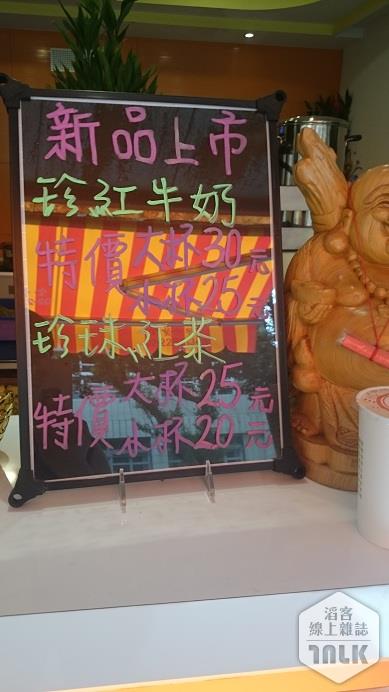 新品上市
珍紅牛奶
特價 大杯30元
小杯25元
珍珠紅茶
特價 大杯25元
小杯20元
滔客
線上雜誌
TALK